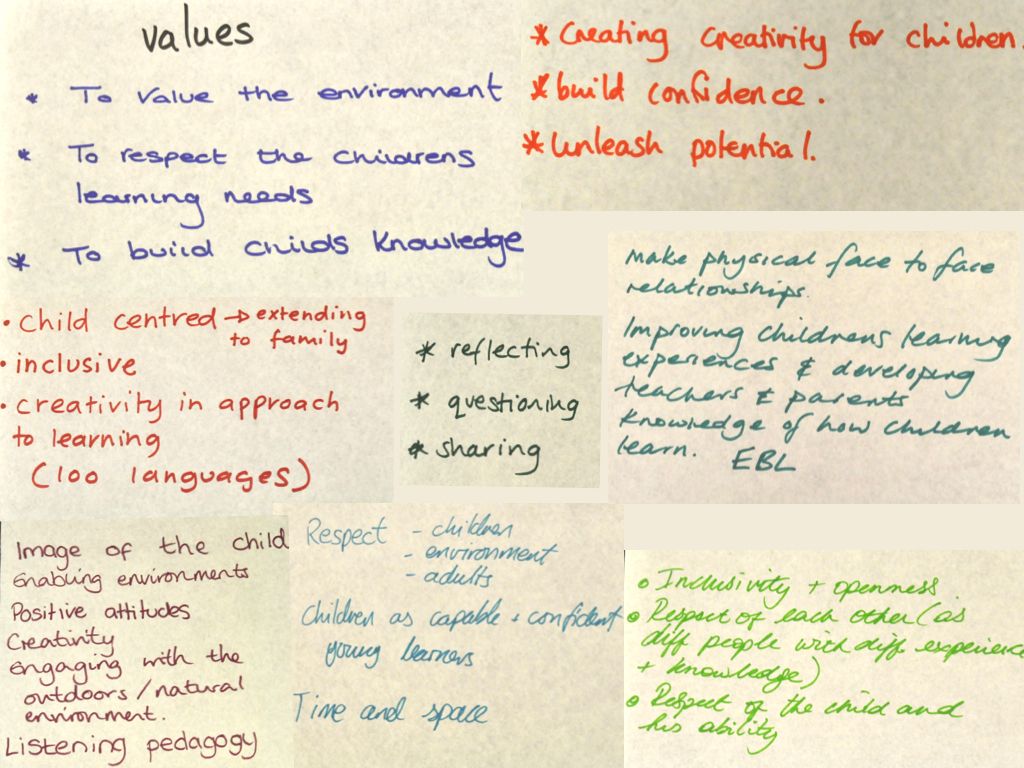 values
* To value the environment
* To respect the childrens
learning needs
* To build childs knowledge
* Creating creativity for children.
* build confidence.
* Unleash potential.
make physical face to face
relationships.
Improving childrens learning
experiences & developing
teachers & parents
knowledge of how children
learn. EBL
• child centred → extending
to family
• inclusive
• creativity in approach
to learning
(100 languages)
* reflecting
* questioning
* sharing
Image of the child
Enabling environments
Positive attitudes
Creativity
Engaging with the
outdoors / natural
environment.
Listening pedagogy
Respect - children
- environment
- adults
Children as capable + confident
young learners
Time and space
• Inclusivity + openness
• Respect of each other (as
diff people with diff. experience
+ knowledge)
• Respect of the child and
his ability